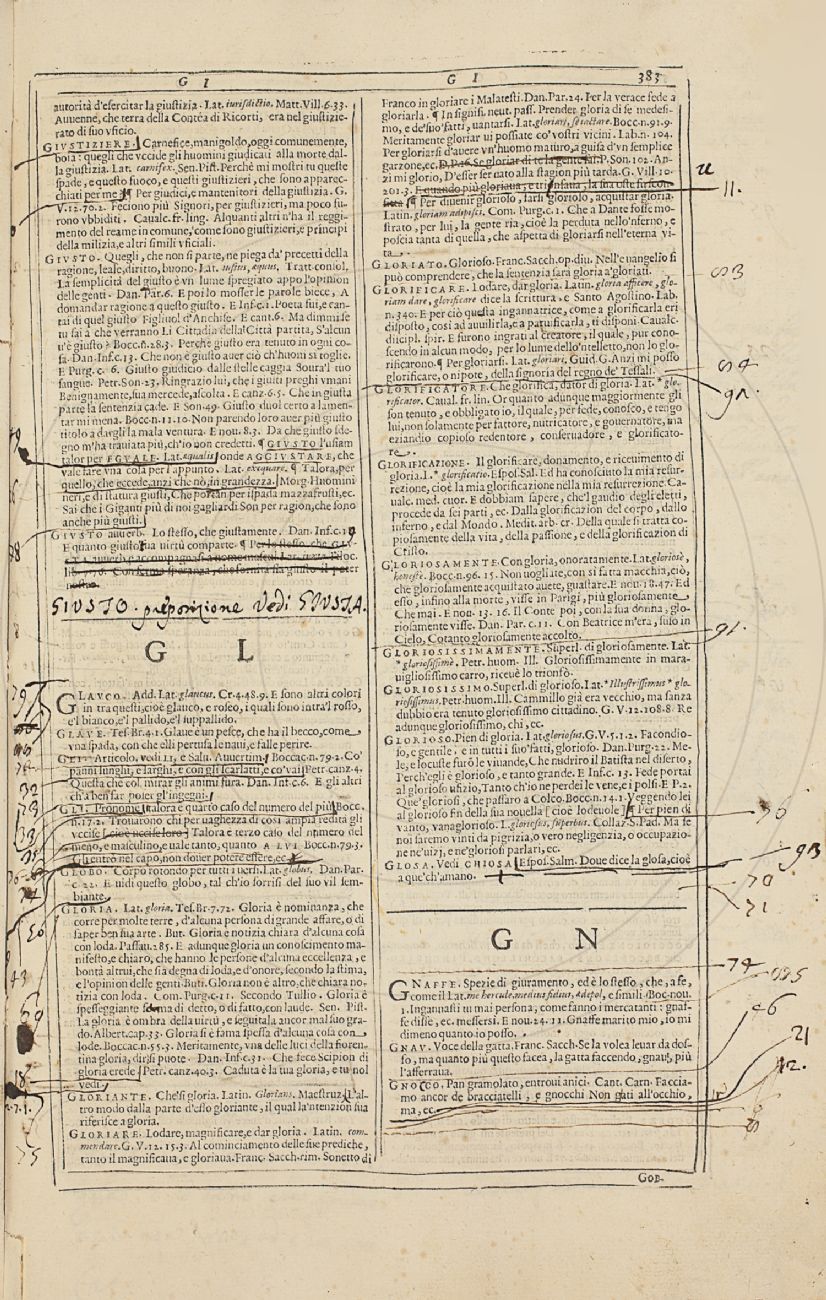 G I
G I
383
autorità d'esercitar la giustizia. Lat. iurisdictio. Matt. Vill. 6. 33.
Auuenne, che terra della Contéa di Ricorti, era nel giustizie-
rato di suo vficio.
GIVSTIZIERE. Carnefice, manigoldo, oggi comunemente,
boia: quegli che vccide gli huomini giudicati alla morte dal-
la giustizia. Lat. carnifex. Sen. Pist. Perchè mi mostri tu queste
spade, e questo fuoco, e questi giustizieri, che sono apparec-
chiati per me? ¶ Per giudici, e mantenitori della giustizia. G.
V. 12. 70. 2. Feciono più Signori, per giustizieri, ma poco fu-
rono vbbiditi. Caualc. fr. ling. Alquanti altri n'ha il reggi-
mento del reame in comune, come sono giustizieri, e principi
della milizia, e altri simili vficiali.
GIVSTO. Quegli, che non si parte, ne piega da' precetti della
ragione, leale, diritto, buono. Lat. iustus, æquus. Tratt. consol.
La semplicità del giusto è vn lume spregiato appo l'opinion
delle genti. Dan. Par. 6. E poi lo mosser le parole biece, A
domandar ragione a questo giusto. E Inf. c. 1. Poeta fui, e can-
tai di quel giusto Figliuol d'Anchise. E cant. 6. Ma dimmi se
tu sai a che verranno Li Cittadin della Città partita, S'alcun
u'è giusto? Bocc. n. 28. 3. Perchè giusto era tenuto in ogni co-
sa. Dan. Inf. c. 13. Che non è giusto auer ciò ch'huom si toglie.
E Purg. c. 6. Giusto giudicio dalle stelle caggia Soura'l tuo
sangue. Petr. Son. 23. Ringrazio lui, che i giusti preghi vmani
Benignamente, sua mercede, ascolta. E canz. 6. 5. Che in giusta
parte la sentenzia cade. E Son. 49. Giusto duol certo a lamen-
tar mi mena. Bocc. n. 11. 10. Non parendo loro auer più giusto
titolo a dargli la mala ventura. E nou. 8. 3. Da che giusto sde-
gno m'ha trauiata più, ch'io non credetti. ¶ GIVSTO l'usiam
talor per EGVALE. Lat. æqualis onde AGGIVSTARE, che
vale fare vna cosa per l'appunto. Lat. exæquare. ¶ Talora, per
quello, che eccede, anzi che nò, in grandezza. Morg. Huomini
neri, e di statura giusti, Che portan per ispada mazzafrusti, ec.
Sai che i Giganti più di noi gagliardi Son per ragion, che sono
anche più giusti.
GIVSTO auuerb. Lo stesso, che giustamente. Dan. Inf. c. 19.
E quanto giusto sua virtù comparte.
GIUSTO. preposizione Vedi GIUSTA.
G L
GLAVCO. Add. Lat. glaucus. Cr. 4. 48. 9. E sono altri colori
in tra questi, cioè glauco, e roseo, i quali sono intra'l rosso,
e'l bianco, e'l pallido, e'l suppallido.
GLAVE. Tes. Br. 4. 1. Glaue è un pesce, che ha il becco, come
vna spada, con che elli pertusa le naui, e falle perire.
GLI. Articolo. vedi II, e Salu. Auuertim. Boccac. n. 79. 2. Co'
panni lunghi, e larghi, e con gli scarlatti, e co' vai Petr. canz. 4.
Questa che col mirar gli animi fura. Dan. Inf. c. 6. E gli altri
ch'a ben far poser gl'ingegni.
GLI. Pronome talora è quarto caso del numero del più Bocc.
n. 17. 2. Trouarono chi per uaghezza di così ampia redità gli
vccise cioè uccise loro Talora è terzo caso del numero del
meno, e masculino, e uale tanto, quanto A LVI Bocc. n. 79. 3.
Gli entrò nel capo, non douer potere essere, ec.
GLOBO. Corpo rotondo per tutti i uersi. Lat. globus, Dan. Par.
c. 22. E uidi questo globo, tal ch'io sorrisi del suo vil sem-
biante.
GLORIA. Lat. gloria. Tes. Br. 7. 72. Gloria è nominanza, che
corre per molte terre, d'alcuna persona di grande affare, o di
saper ben sua arte. But. Gloria è notizia chiara d'alcuna cosa
con loda. Passau. 285. E adunque gloria un conoscimento ma-
nifesto, e chiaro, che hanno le persone d'alcuna eccellenza, e
bontà altrui, che sia degna di loda, e d'onore, secondo la stima,
e l'opinion delle genti. Buti. Gloria non è altro, che chiara no-
tizia con loda. Com. Purg. c. 11. Secondo Tullio. Gloria è
spesseggiante fama di detto, o di fatto, con laude. Sen. Pist.
La gloria è ombra della uirtù, e seguitala ancor mal suo gra-
do. Albert. cap. 33. Gloria si è fama spessa d'alcuna cosa con
lode. Boccac. n. 55. 3. Meritamente, vna delle luci della fioren-
tina gloria, dirsi puote. Dan. Inf. c. 31. Che fece Scipion di
gloria erede Petr. canz. 40. 3. Caduta è la tua gloria, e tu nol
vedi.
GLORIANTE. Che si gloria. Latin. Glorians. Maestruz. L'al-
tro modo dalla parte d'esso gloriante, il qual la'ntenzion sua
riferisce a gloria.
GLORIARE. Lodare, magnificare, e dar gloria. Latin. com-
mendare. G. V. 12. 15. 3. Al cominciamento delle sue prediche,
tanto il magnificaua, e gloriaua. Franc. Sacch. rim. Sonetto di
Franco in gloriare i Malatesti. Dan. Par. 24. Per la verace fede a
gloriarla. ¶ In signifi. neut. pass. Prender gloria di se medesi-
mo, e de' suo' fatti, uantarsi. Lat. gloriari, se iactare. Bocc. n. 91. 9.
Meritamente gloriar ui possiate co' vostri vicini. Lab. n. 104.
Per gloriarsi d'auere vn'huomo maturo, a guisa d'vn semplice
garzone, ec. D. P. 46. Se gloriar di te la gente fai. P. Son. 102. An-
zi mi glorio, D'esser seruato alla stagion più tarda. G. Vill. 10.
201. 3. E quando più gloriaua, e trionfaua, la sua oste fu scon-
fitta ¶ Per diuenir glorioso, farsi glorioso, acquistar gloria.
Latin. gloriam adepisci. Com. Purg. c. 1. Che a Dante fosse mo-
strato, per lui, la gente ria, cioè la perduta nello'nferno, e
poscia tanta di quella, che aspetta di gloriarsi nell'eterna vi-
ta.
GLORIATO. Glorioso. Franc. Sacch. op. diu. Nell'euangelio si
può comprendere, che la sentenzia sarà gloria a' gloriati.
GLORIFICARE. Lodare, dar gloria. Latin. gloria afficere, glo-
riam dare, glorificare dice la scrittura, e Santo Agostino. Lab.
n. 340. E per ciò questa ingannatrice, come a glorificarla eri
disposto, così ad auuilirla, e a paruificarla, ti disponi. Caualc.
discipl. spir. E furono ingrati al creatore, il quale, pur cono-
scendo in alcun modo, per lo lume dello'ntelletto, non lo glo-
rificarono. ¶ Per gloriarsi. Lat. gloriari, Guid. G. Anzi mi posso
glorificare, o nipote, della signoria del regno de' Tessali.
GLORIFICATORE. Che glorifica, dator di gloria. Lat. * glo-
rificator. Caual. fr. lin. Or quanto adunque maggiormente gli
son tenuto, e obbligato io, il quale, per fede, conosco, e tengo
lui, non solamente per fattore, nutricatore, e gouernatore, ma
eziandio copioso redentore, conseruadore, e glorificato-
re.
GLORIFICAZIONE. Il glorificare, donamento, e riceuimento di
gloria. L. * glorificatio. Espos. Sal. Ed ha conosciuto la mia resur-
rezione, cioè la mia glorificazione nella mia resurrezione. Ca-
ualc. med. cuor. E dobbiam sapere, che'l gaudio degli eletti,
procede da sei parti, ec. Dalla glorificazion del corpo, dallo
inferno, e dal Mondo. Medit. arb. cr. Della quale si tratta co-
piosamente della vita, della passione, e della glorificazion di
Cristo.
GLORIOSAMENTE. Con gloria, onoratamente. Lat. gloriosè,
honestè. Bocc. n. 96. 15. Non uogliate, con sì fatta macchia, ciò,
che gloriosamente acquistato auete, guastare. E nou. 18. 47. Ed
esso, infino alla morte, visse in Parigi, più gloriosamente
Che mai. E nou. 13. 16. Il Conte poi, con la sua donna, glo-
riosamente visse. Dan. Par. c. 11. Con Beatrice m'era, suso in
Cielo, Cotanto gloriosamente accolto.
GLORIOSISSIMAMENTE. Superl. di gloriosamente. Lat.
* gloriosissimè. Petr. huom. Ill. Gloriosissimamente in mara-
uigliosissimo carro, riceuè lo trionfo.
GLORIOSISSIMO. Superl. di glorioso. Lat. * Illustrissimus * glo-
riosissimus. Petr. huom. Ill. Cammillo già era vecchio, ma sanza
dubbio era tenuto gloriosissimo cittadino. G. V. 12. 108. 8. Re
adunque gloriosissimo, chi, ec.
GLORIOSO. Pien di gloria. Lat. gloriosus. G. V. 5. 1. 2. Facondio-
so, e gentile: e in tutti i suo' fatti, glorioso. Dan. Purg. 22. Me-
le, e locuste furo le viuande, Che nudriro il Batista nel diserto,
Perch'egli è glorioso, e tanto grande. E Inf. c. 13. Fede portai
al glorioso ufizio, Tanto ch'io ne perdei le vene, e i polsi. E P. 2.
Que' gloriosi, che passaro a Colco. Bocc. n. 14. 1. Veggendo lei
al glorioso fin della sua nouella cioè lodeuole ¶ Per pien di
vanto, vanaglorioso. L. gloriosus, superbus. Collaz. S. Pad. Ma se
noi saremo vinti da pigrizia, o vero negligenzia, o occupazio-
ne ne' uizj, e ne' gloriosi parlari, ec.
GLOSA. Vedi CHIOSA Espos. Salm. Doue dice la glosa, cioè
a que' ch'amano.
G N
GNAFFE. Spezie di giuramento, ed è lo stesso, che, a fe,
come il Lat. me hercule, medius fidius, ædepol, e simili. Boc. nou.
1. Ingannasti tu mai persona; come fanno i mercatanti: gnaf-
fe disse, ec. messersì. E nou. 24. 11. Gnaffe marito mio, io mi
dimeno quanto io posso.
GNAV. Voce della gatta. Franc. Sacch. Se la volea leuar da dos-
so, ma quanto più questo facea, la gatta faccendo, gnau, più
l'afferraua.
GNOCCO. Pan gramolato, entroui anici. Cant. Carn. Faccia-
mo ancor de bracciatelli, e gnocchi Non gati all'occhio,
ma, ec.
GOB-
11.
70
71
74
21
12.